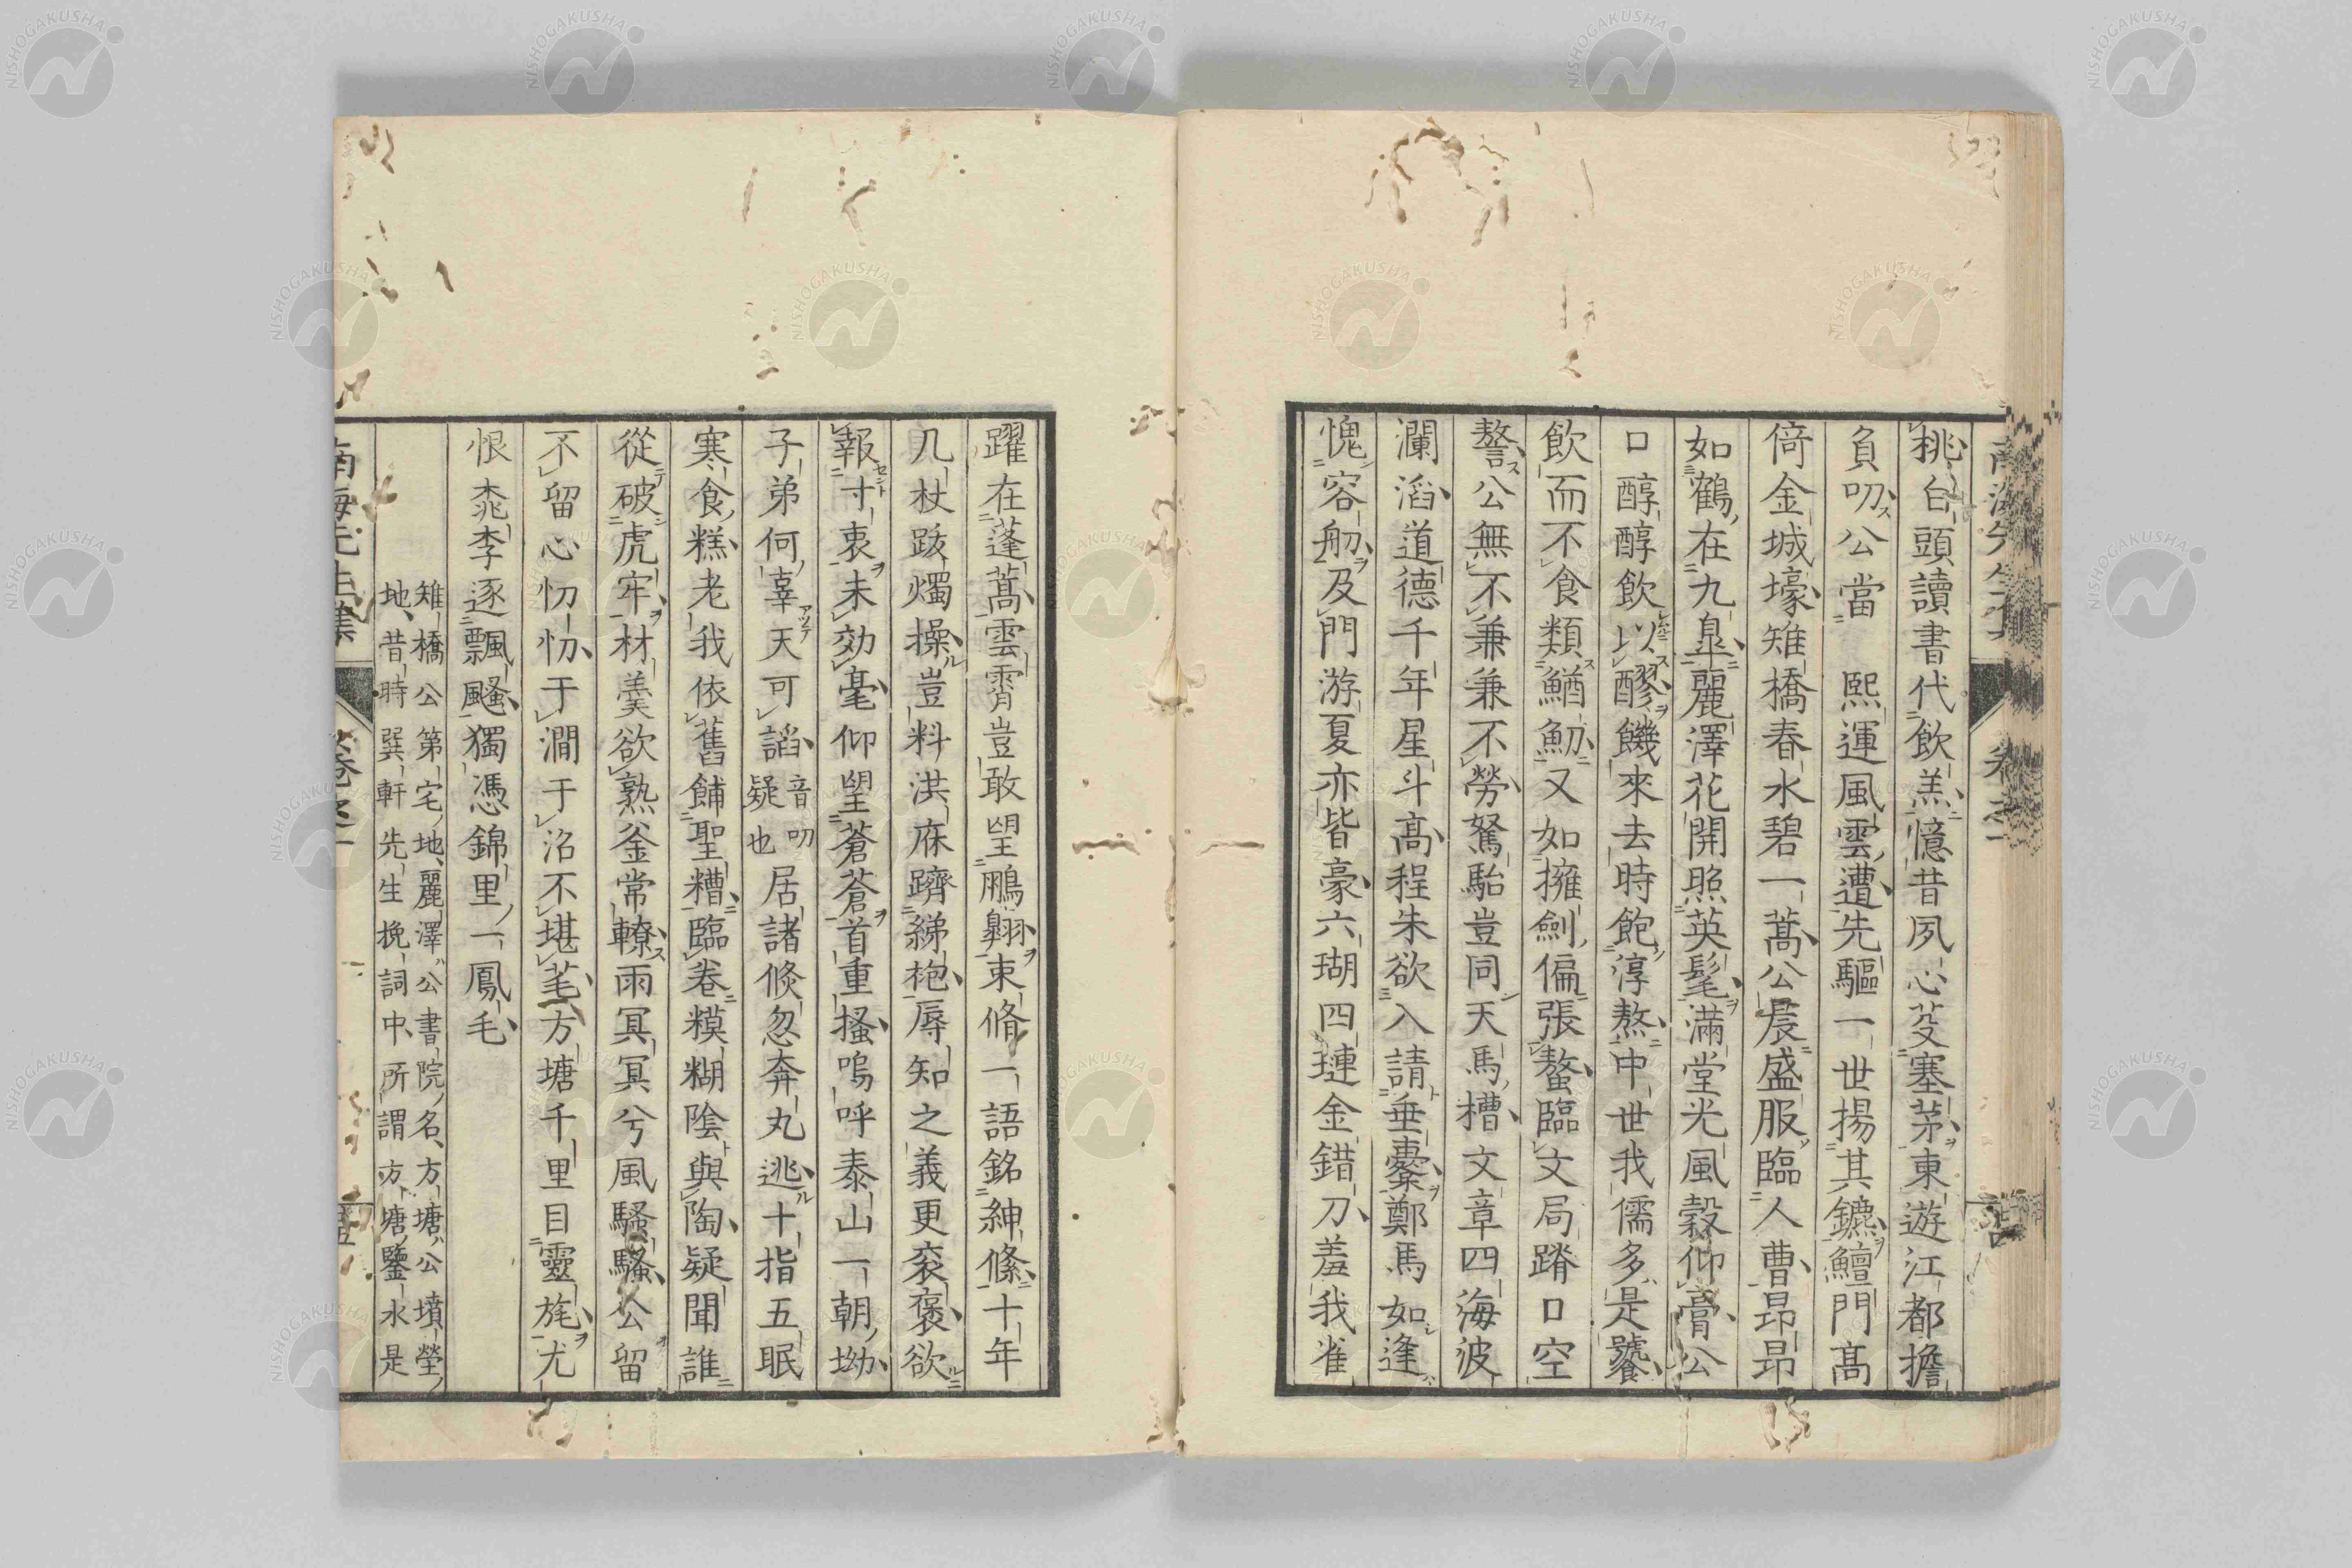 挑台頭讀書代飲羔憶昔夙心芟塞茅東遊江都擔
負叨公當熙運風雲遭先驅一世揚其鑣鱣門高
倚金城壕雉橋春水碧一蒿公晨盛服臨人曹昂昂
如鶴在九皐麗澤花開照英髦滿堂光風縠仰膏公
口醇醇飲以醪饑來去時飽淳熬中世我儒多是饕
飲而不食類鰌魛又如擁劍偏張螯臨文局蹐口空
謷公無不兼兼不勞駑駘豈同天馬槽文章四海波
瀾滔道德千年星斗高程朱欲入請垂櫜鄭馬如逢
愧容舠及門游夏亦皆豪六瑚四璉金錯刀羞我雀
躍在蓬蒿雲霄豈敢望鵬翺束脩一語銘紳絛十年
几杖跋燭操豈料洪庥躋綈袍辱知之義更衮褒欲
報寸衷未効毫仰望蒼蒼首重搔嗚呼泰山一朝坳
子弟何辜天可謟音叨疑也居諸倏忽奔丸逃十指五眠
寒食糕老我依舊餔聖糟臨卷糢糊陰與陶疑聞誰
從破虎牢材羹欲熟釜常轑雨冥冥兮風騷騷公留
不留心忉忉于澗于沼不堪芼方塘千里目靈旄尤
恨桃李逐飄颾獨憑錦里一鳳毛
雉橋公第宅地麗澤公書院名方塘公墳塋
地昔時巽軒先生挽詞中所謂方塘鑒水是
南海先生集 卷之一